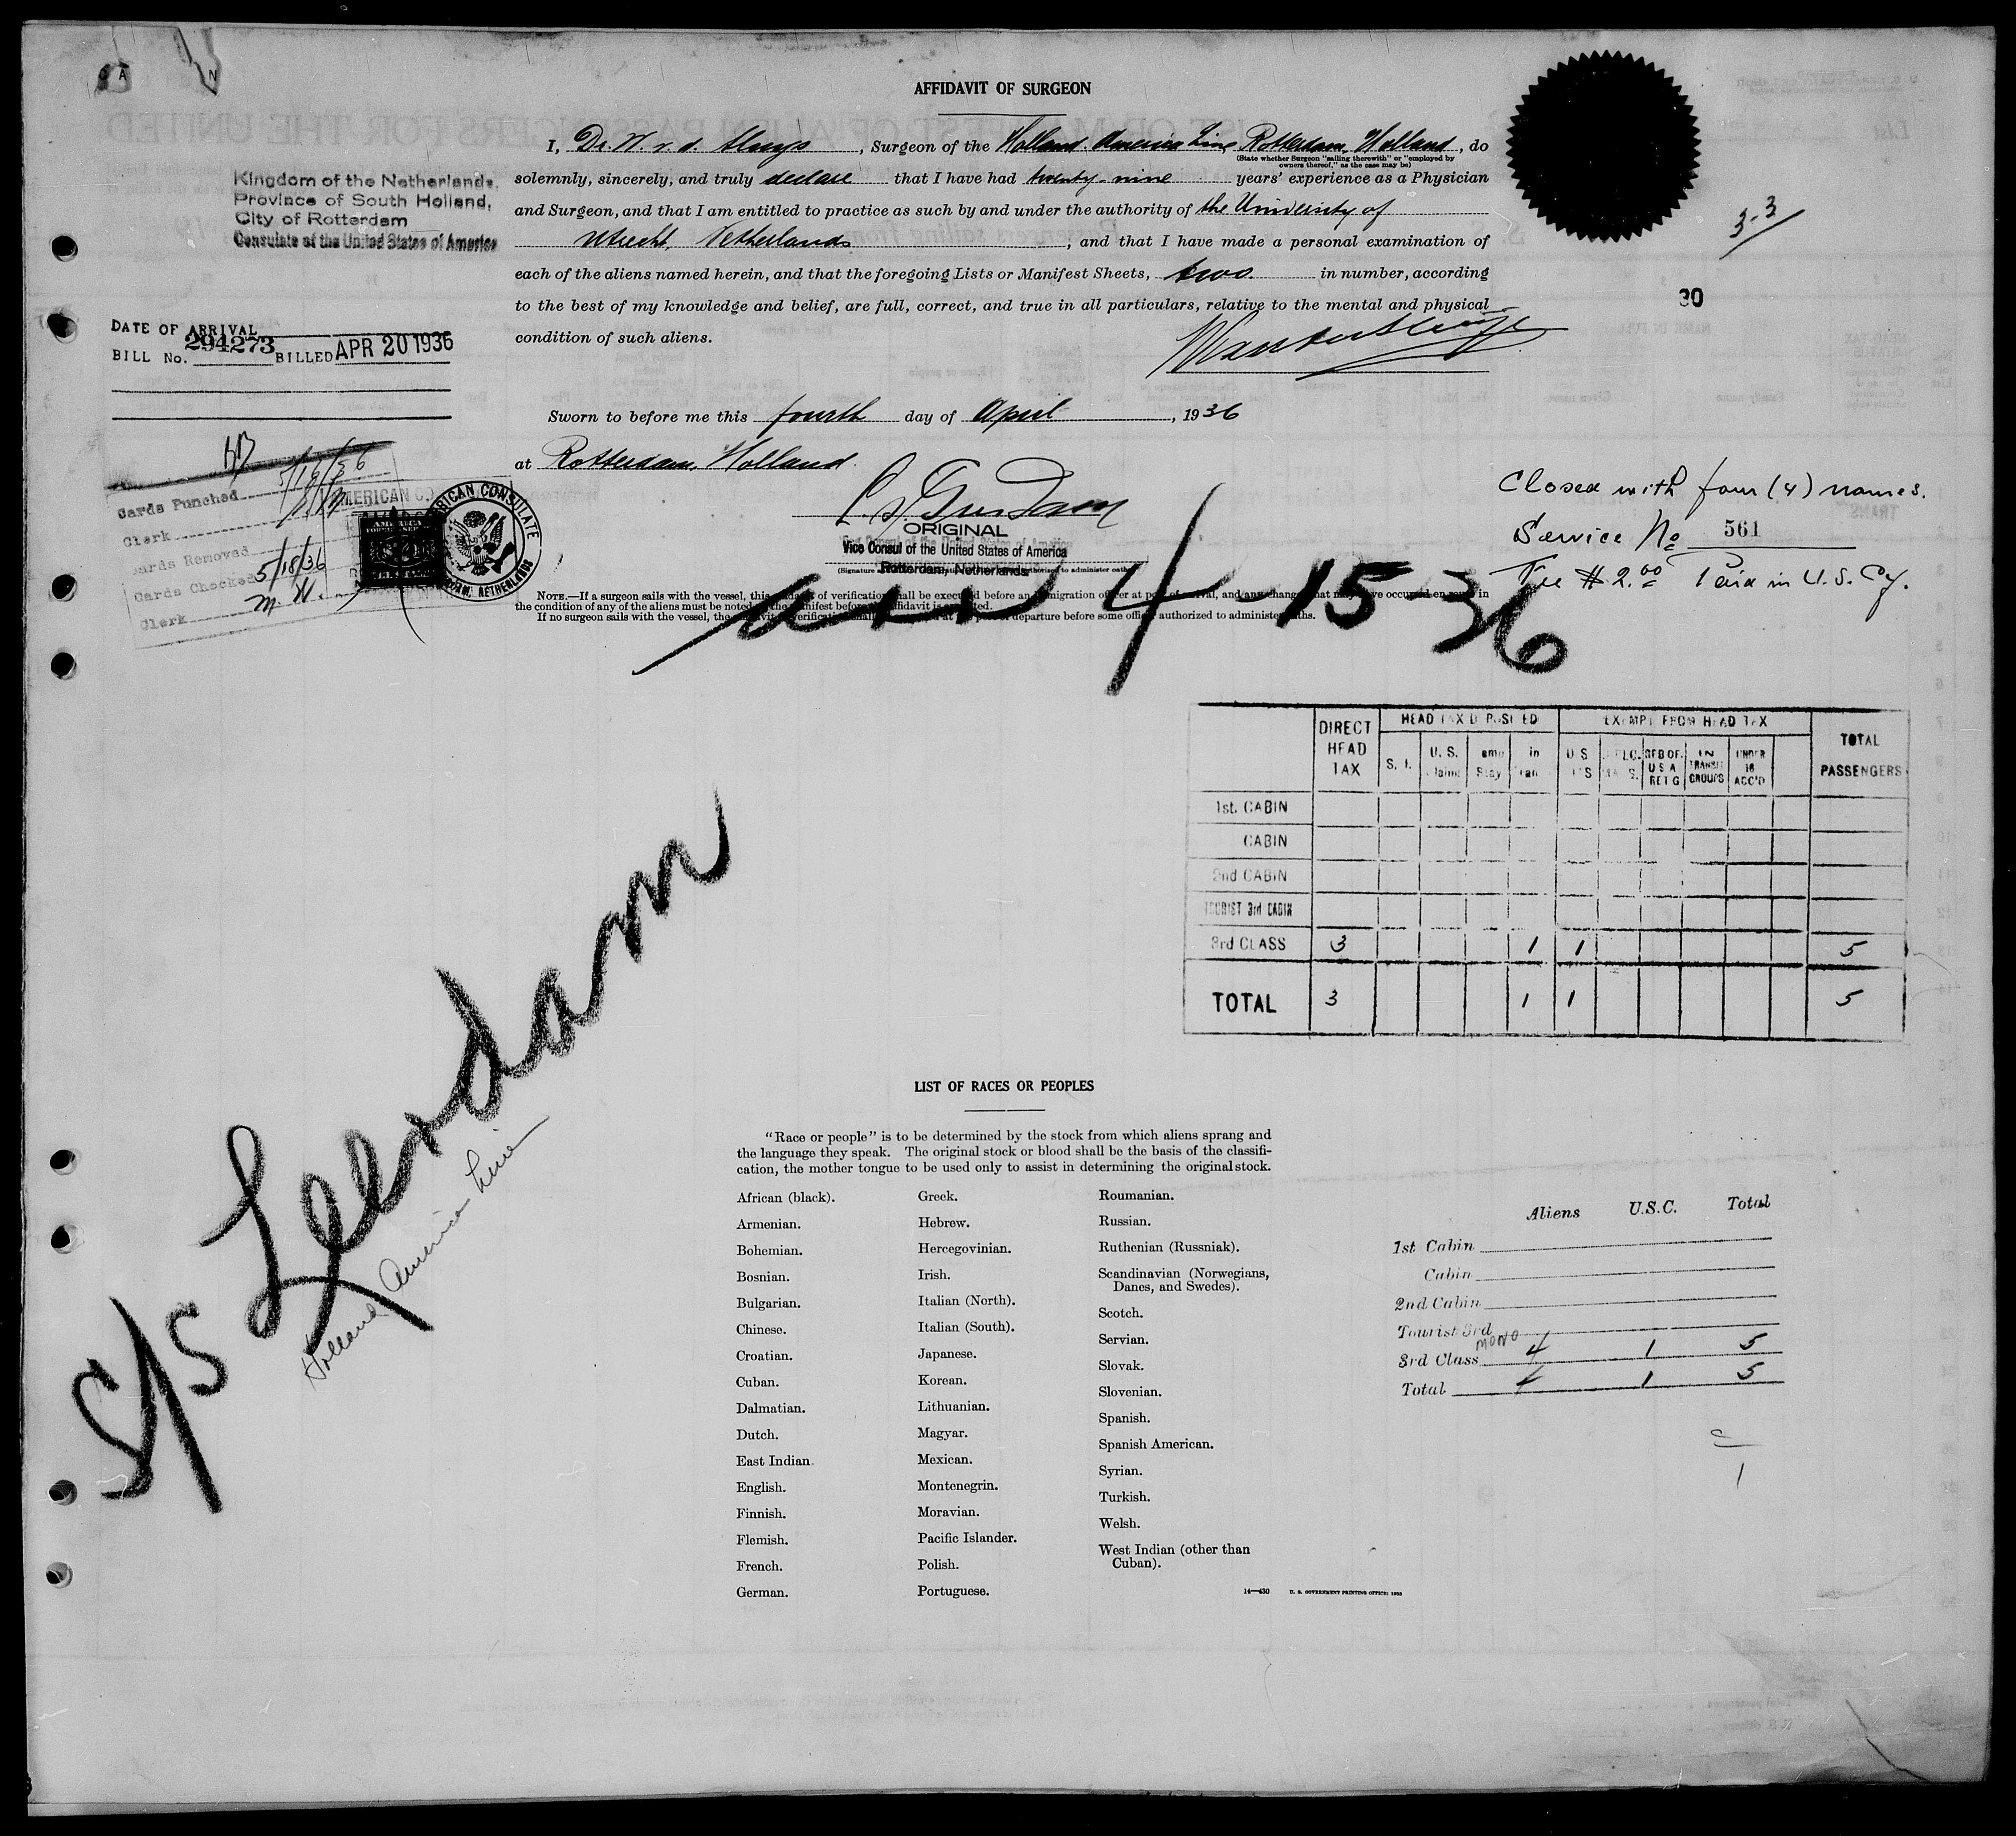 AFFIDAVIT OF SURGEON
I, Dr. W. v. d. Sluys, Surgeon of the Holland America Line, Rotterdam, Holland, do
(State whether Surgeon "sailing therewith" or "employed by
owners thereof," as the case may be)
solemnly, sincerely, and truly declare that I have had twenty-nine years' experience as a Physician
and Surgeon, and that I am entitled to practice as such by and under the authority of the University of
Utrecht, Netherlands, and that I have made a personal examination of
each of the aliens named herein, and that the foregoing Lists or Manifest Sheets, two in number, according
to the best of my knowledge and belief, are full, correct, and true in all particulars, relative to the mental and physical
condition of such aliens.
Kingdom of the Netherlands,
Province of South Holland,
City of Rotterdam
Consulate of the United States of America
3-3
30
DATE OF ARRIVAL
BILL No. 294273 BILLED APR 20 1936
Sworn to before me this fourth day of April, 1936
at Rotterdam, Holland.
Cards Punched 5/16/36
Clerk
Cards Removed
Cards Checked 5/18/36
Clerk M. W.
AMERICAN CONSULATE
ROTTERDAM, NETHERLANDS
ORIGINAL
Vice Consul of the United States of America
Rotterdam, Netherlands
Closed with four (4) names.
Service No 561
Fee $2.00 Paid in U.S. Cy.
NOTE.—If a surgeon sails with the vessel, this affidavit of verification shall be executed before an immigration officer at port of arrival, and any change that may have occurred en route in
the condition of any of the aliens must be noted on the manifest before affidavit is executed.
If no surgeon sails with the vessel, the affidavit of verification shall be executed at the port of departure before some officer authorized to administer oaths.
4-15-36
DIRECT HEAD TAX HEAD TAX DEPOSITED EXEMPT FROM HEAD TAX TOTAL PASSENGERS
S. I. U. S. Claim Stay in Tran U S DIPLO. REB OF U S A RET G IN TRANSIT GROUPS UNDER 16 ACC'D
1st. CABIN
CABIN
2nd CABIN
TOURIST 3rd CABIN
3rd CLASS 3 1 1 5
TOTAL 3 1 1 5
S/S Leerdam
Holland America Line
LIST OF RACES OR PEOPLES
"Race or people" is to be determined by the stock from which aliens sprang and
the language they speak. The original stock or blood shall be the basis of the classifi-
cation, the mother tongue to be used only to assist in determining the original stock.
African (black).
Armenian.
Bohemian.
Bosnian.
Bulgarian.
Chinese.
Croatian.
Cuban.
Dalmatian.
Dutch.
East Indian.
English.
Finnish.
Flemish.
French.
German.
Greek.
Hebrew.
Hercegovinian.
Irish.
Italian (North).
Italian (South).
Japanese.
Korean.
Lithuanian.
Magyar.
Mexican.
Montenegrin.
Moravian.
Pacific Islander.
Polish.
Portuguese.
Roumanian.
Russian.
Ruthenian (Russniak).
Scandinavian (Norwegians,
Danes, and Swedes).
Scotch.
Servian.
Slovak.
Slovenian.
Spanish.
Spanish American.
Syrian.
Turkish.
Welsh.
West Indian (other than
Cuban).
14—430 U. S. GOVERNMENT PRINTING OFFICE:
Aliens U.S.C. Total
1st Cabin
Cabin
2nd Cabin
Tourist 3rd
3rd Class MONO 4 1 5
Total 4 1 5